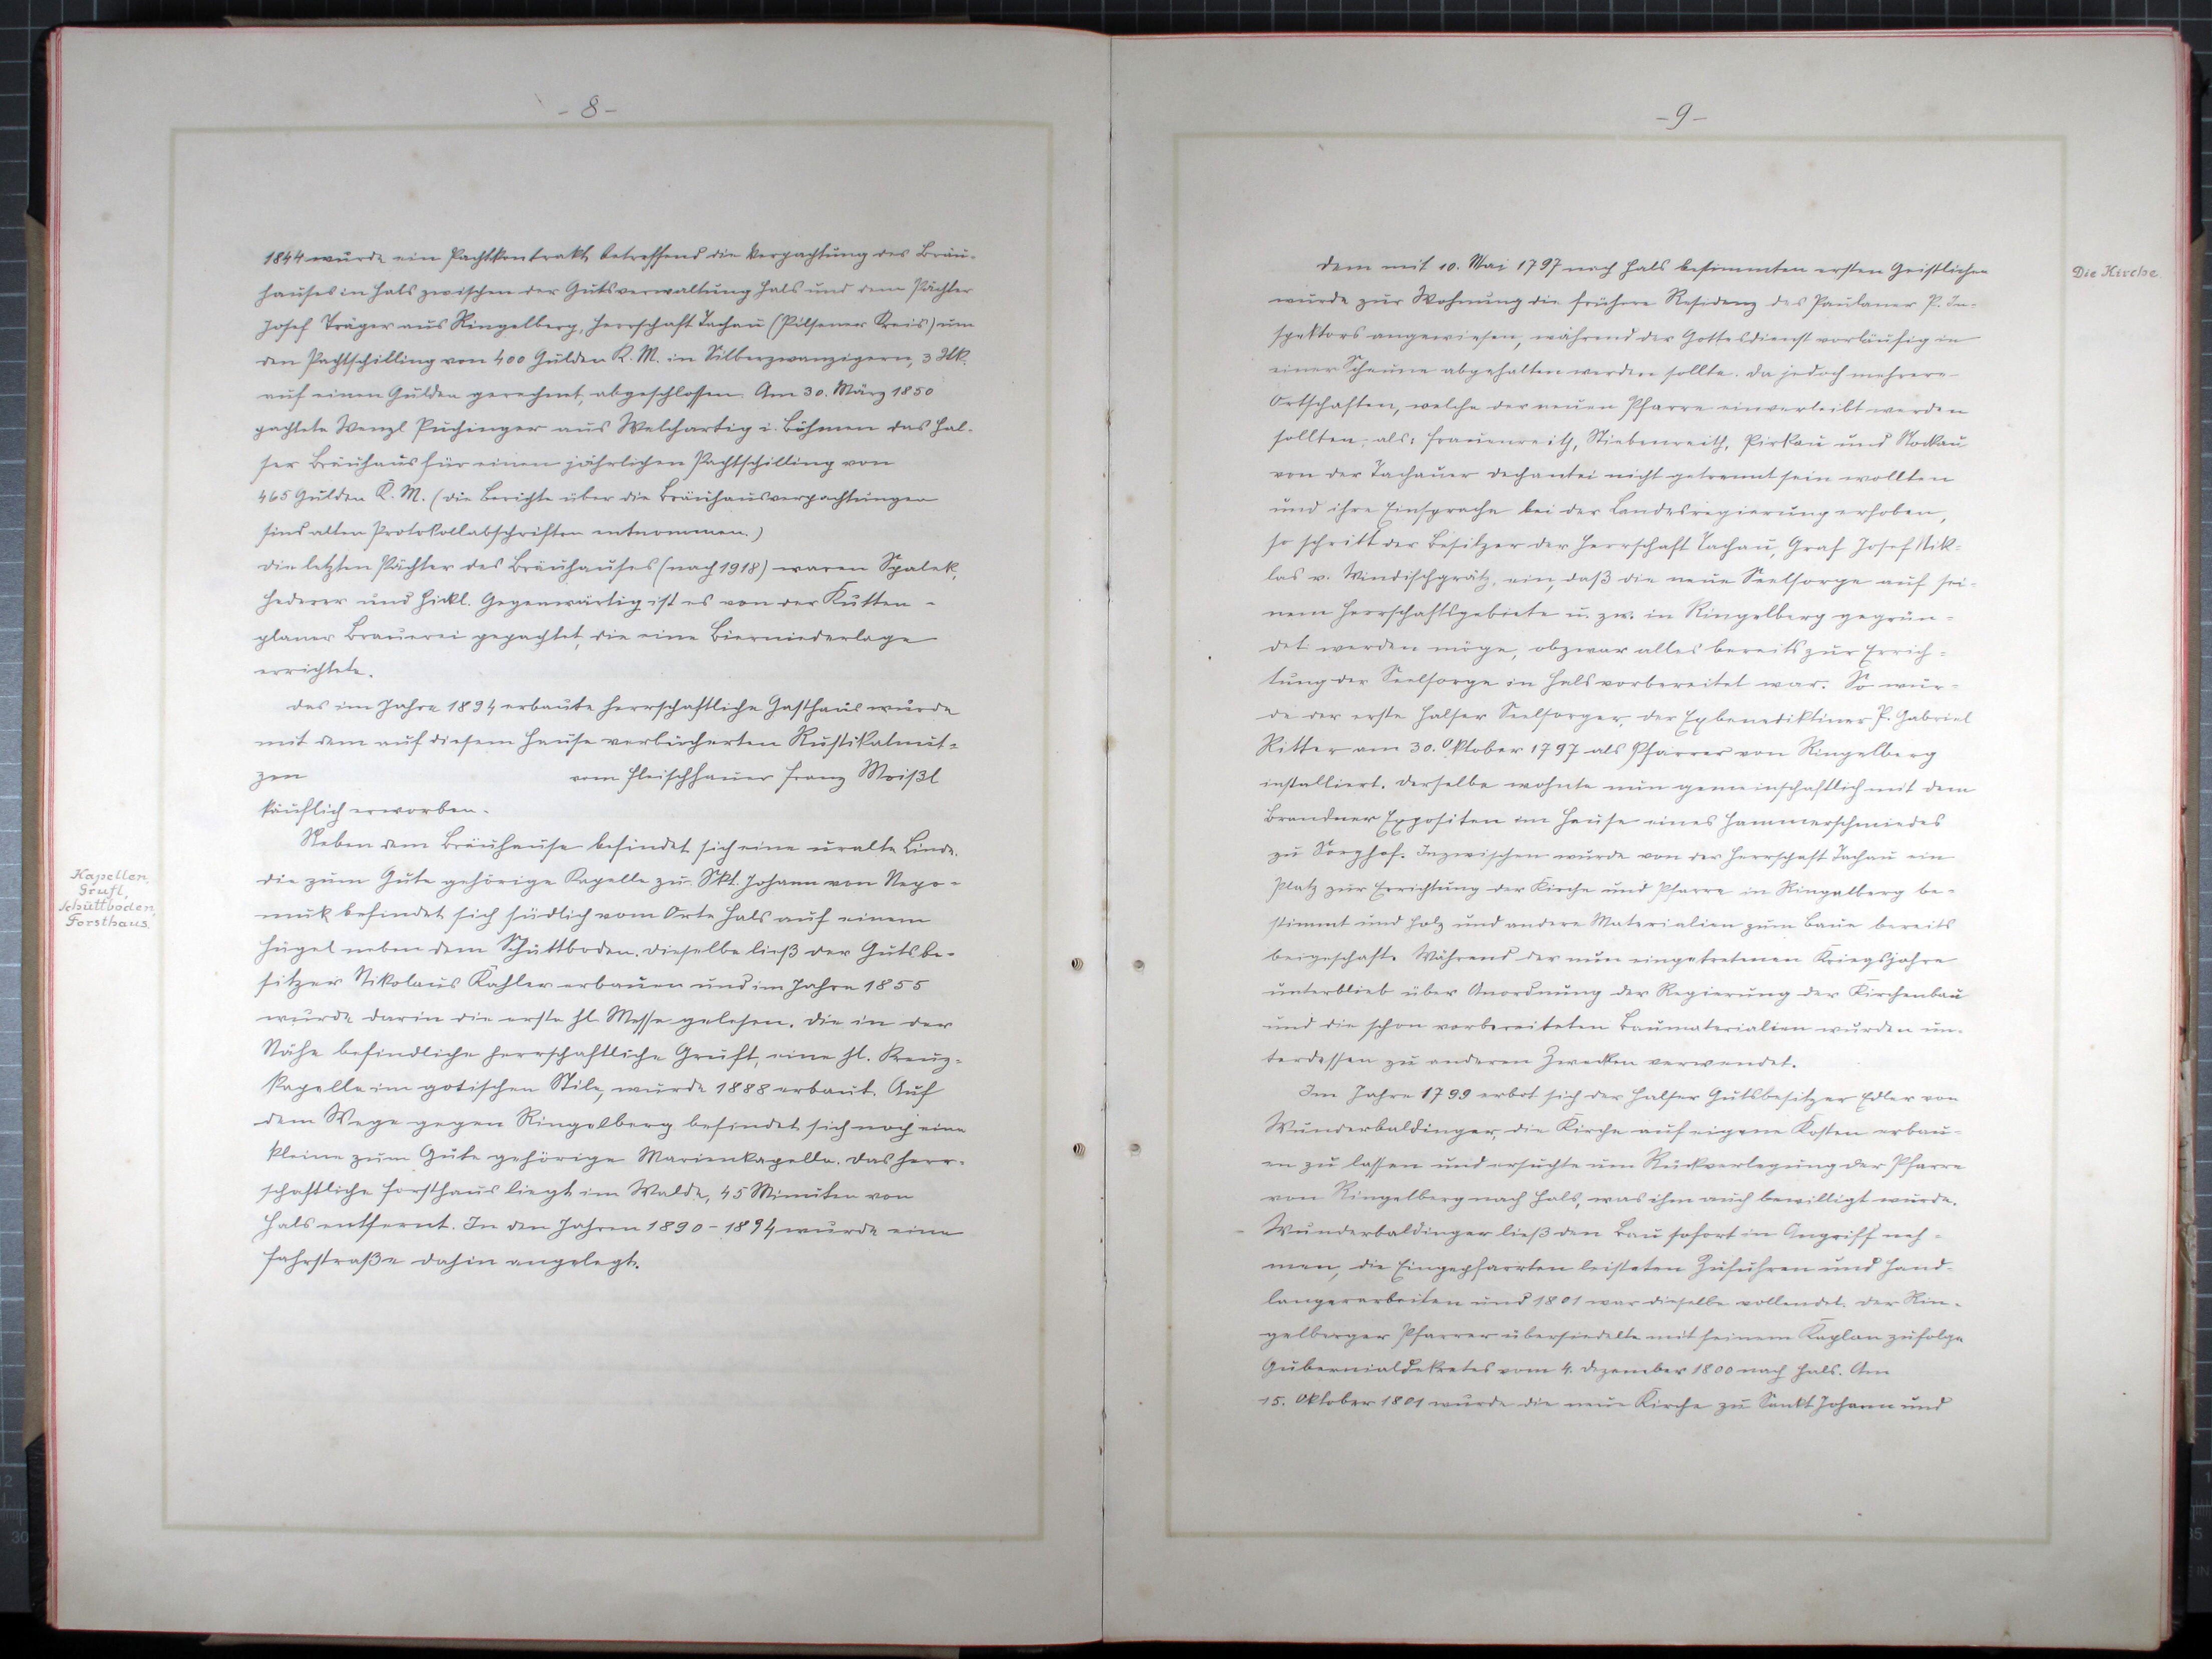 - 8 -
1844 wurde ein Pachtkontrakt betreffend die Verpachtung des Bräu-
hauses in Hals zwischen der Gutsverwaltung Hals und dem Pächter
Josef Träger aus Ringelberg, Herrschaft Tachau (Pilsener Kreis) um
den Pachtschilling von 400 Gulden K. M. in Silberzwanzigern, 3 Stk.
auf einen Gulden gerechnet, abgeschlossen. Am 30. März 1850
pachtete Wenzl Puchinger aus Welchartig i. Böhmen das Hal-
ser Bräuhaus für einen jährlichen Pachtschilling von
465 Gulden K. M. (Die Berichte über die Bräuhausverpachtungen
sind alten Protokollabschriften entnommen.)
Die letzten Pächter des Bräuhauses (nach 1918) waren Spalek,
Hederer und Hickl. Gegenwärtig ist es von der Kutten-
planer Brauerei gepachtet, die eine Bierniederlage
errichtete.
Das im Jahre 1894 erbaute herrschaftliche Gasthaus wurde
mit dem auf diesem Hause verbücherten Rustikalnut-
zen vom Fleischhauer Franz Moißl
käuflich erworben.
Neben dem Bräuhause befindet sich eine uralte Linde.
Kapellen,
Gruft,
Schüttboden,
Forsthaus.
Die zum Gute gehörige Kapelle zu Skt. Johann von Nepo-
muk befindet sich südlich vom Orte Hals auf einem
Hügel neben dem Schüttboden. Dieselbe ließ der Gutsbe-
sitzer Nikolaus Kahler erbauen und im Jahre 1855
wurde darin die erste hl. Messe gelesen. Die in der
Nähe befindliche herrschaftliche Gruft, eine hl. Kreuz-
kapelle im gotischen Stile, wurde 1888 erbaut. Auf
dem Wege gegen Ringelberg befindet sich noch eine
kleine zum Gute gehörige Marienkapelle. Das herr-
schaftliche Forsthaus liegt im Walde, 45 Minuten von
Hals entfernt. In den Jahren 1890 - 1894 wurde eine
Fahrstraße dahin angelegt.
- 9 -
Die Kirche.
Dem mit 10. Mai 1797 nach Hals bestimmten ersten Geistlichen
wurde zur Wohnung die frühere Residenz des Paulaner P. In-
spektors angewiesen, während der Gottesdienst vorläufig in
einer Scheune abgehalten werden sollte. Da jedoch mehrere
Ortschaften, welche der neuen Pfarre einverleibt werden
sollten, als: Frauenreith, Stiebenreith, Pirkau und Stockau
von der Tachauer Dechantei nicht getrennt sein wollten
und ihre Einsprache bei der Landesregierung erhoben,
so schritt der Besitzer der Herrschaft Tachau, Graf Josef Nik-
las v. Windischgrätz, ein, daß die neue Seelsorge auf sei-
nem Herrschaftsgebiete u. zw. in Ringelberg gegrün-
det werden möge, obzwar alles bereits zur Errich-
tung der Seelsorge in Hals vorbereitet war. So wur-
de der erste Halser Seelsorger, der Exbenediktiner P. Gabriel
Ritter am 30. Oktober 1797 als Pfarrer von Ringelberg
installiert. Derselbe wohnte nun gemeinschaftlich mit dem
Brandner Expositen im Hause eines Hammerschmiedes
zu Sorghof. Inzwischen wurde von der Herrschaft Tachau ein
Platz zur Errichtung der Kirche und Pfarre in Ringelberg be-
stimmt und Holz und andere Materialien zum Baue bereits
beigeschaft. Während der nun eingetretenen Kriegsjahre
unterblieb über Anordnung der Regierung der Kirchenbau
und die schon vorbereiteten Baumaterialien wurden un-
terdessen zu anderen Zwecken verwendet.
Im Jahre 1799 erbot sich der Halser Gutsbesitzer Edler von
Wunderbaldinger, die Kirche auf eigene Kosten erbau-
en zu lassen und ersuchte um Rückverlegung der Pfarre
von Ringelberg nach Hals, was ihm auch bewilligt wurde.
Wunderbaldinger ließ den Bau sofort in Angriff neh-
men, die Eingepfarrten leisteten Zufuhren und Hand-
langerarbeiten und 1801 war dieselbe vollendet. Der Rin-
gelberger Pfarrer übersiedelte mit seinem Kaplan zufolge
Gubernialdekretes vom 4. Dezember 1800 nach Hals. Am
15. Oktober 1801 wurde die neue Kirche zu Sankt Johann und